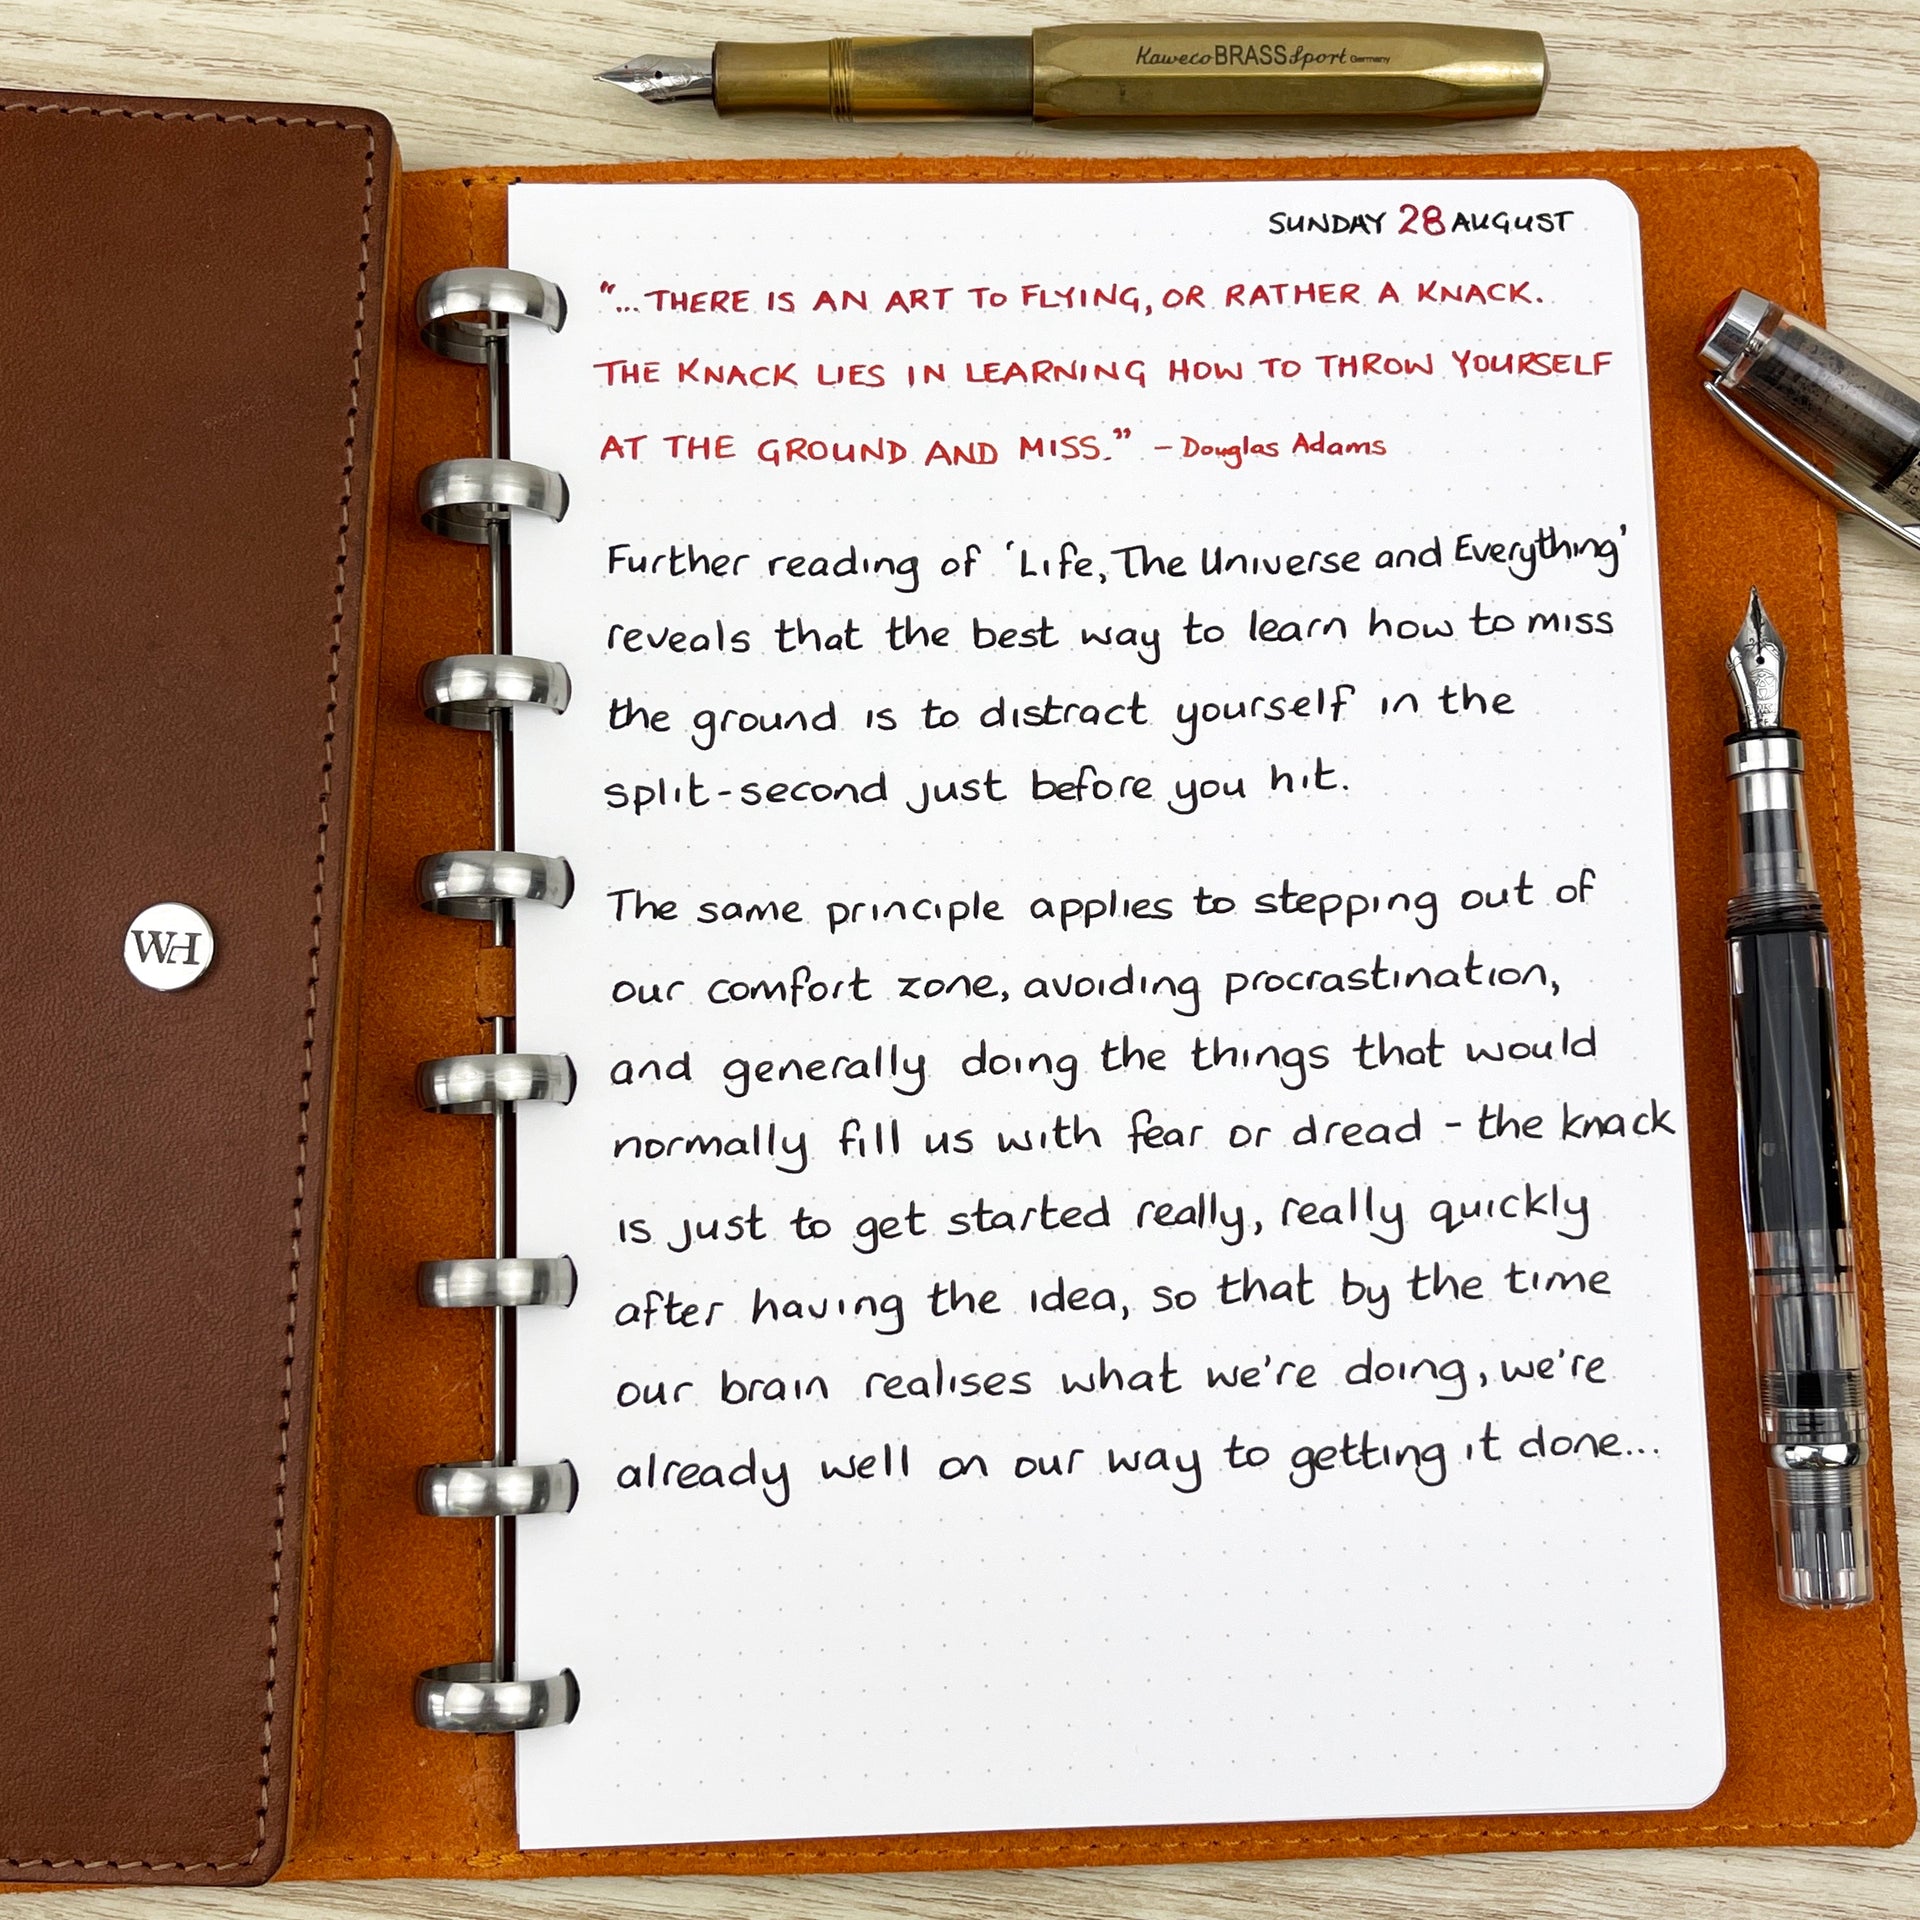 Kaweco BRASS Sport Germany
SUNDAY 28 AUGUST
“...THERE IS AN ART TO FLYING, OR RATHER A KNACK.
THE KNACK LIES IN LEARNING HOW TO THROW YOURSELF
AT THE GROUND AND MISS.” – Douglas Adams
Further reading of ‘Life, The Universe and Everything’
reveals that the best way to learn how to miss
the ground is to distract yourself in the
split-second just before you hit.
The same principle applies to stepping out of
our comfort zone, avoiding procrastination,
and generally doing the things that would
normally fill us with fear or dread - the knack
is just to get started really, really quickly
after having the idea, so that by the time
our brain realises what we're doing, we're
already well on our way to getting it done...
WH